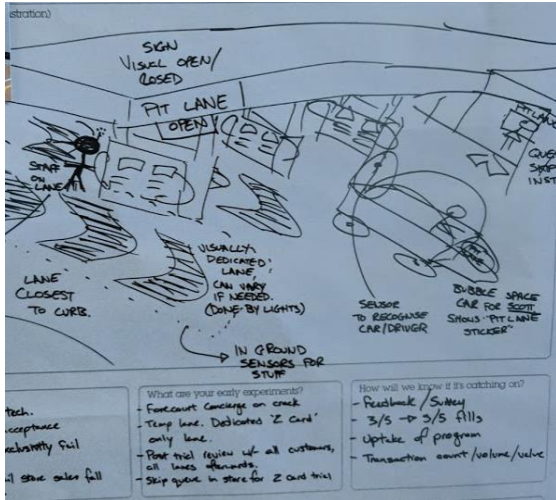 stration)
SIGN
VISUAL OPEN/
CLOSED
PIT LANE
OPEN
STAFF
ON
LANE
LANE
CLOSEST
TO CURB.
VISUALLY
DEDICATED
LANE,
CAN VARY
IF NEEDED.
(DONE BY LIGHTS)
IN GROUND
SENSORS FOR
STUFF
SENSOR
TO RECOGNISE
CAR/DRIVER
BUBBLE SPACE
CAR FOR SCOTT
SHOWS "PIT LANE
STICKER"
PIT LANE
tech.
acceptance
fail
store sales fall
What are your early experiments?
- Forecourt Concierge on crack
- Temp lane. Dedicated 'Z Card'
only lane.
- Post trial review w/ all customers,
all lanes afterwards
- Skip queue in store for Z card trial
How will we know if it's catching on?
- Feedback / Survey
- 3/5 → 5/5 fills
- Uptake of program
- Transaction count/volume/value